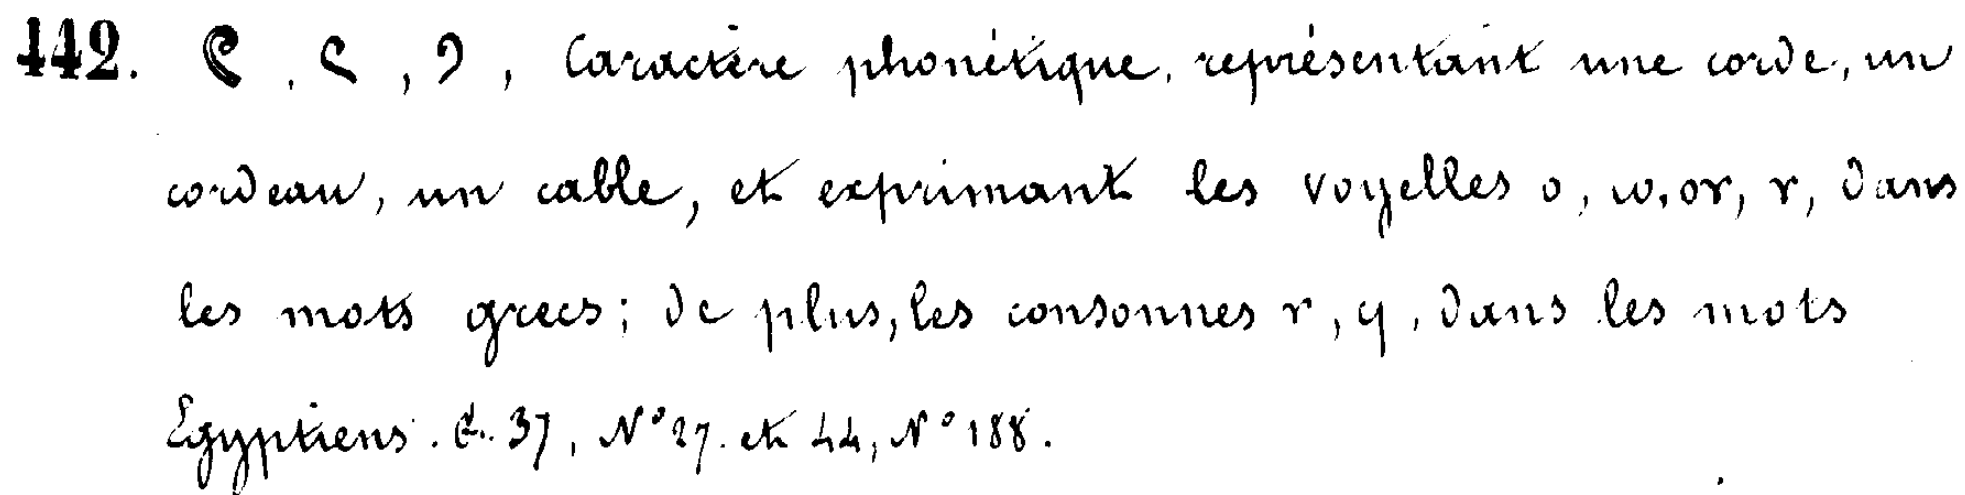 442. 𓏲, 𓏲, 𓏲, Caractère phonétique, représentant une corde, un
cordeau, un cable, et exprimant les voyelles o, ω, or, r, dans
les mots grecs; de plus, les consonnes r, ϥ, dans les mots
Egyptiens. G. 37, N° 27. et 44, N° 188.